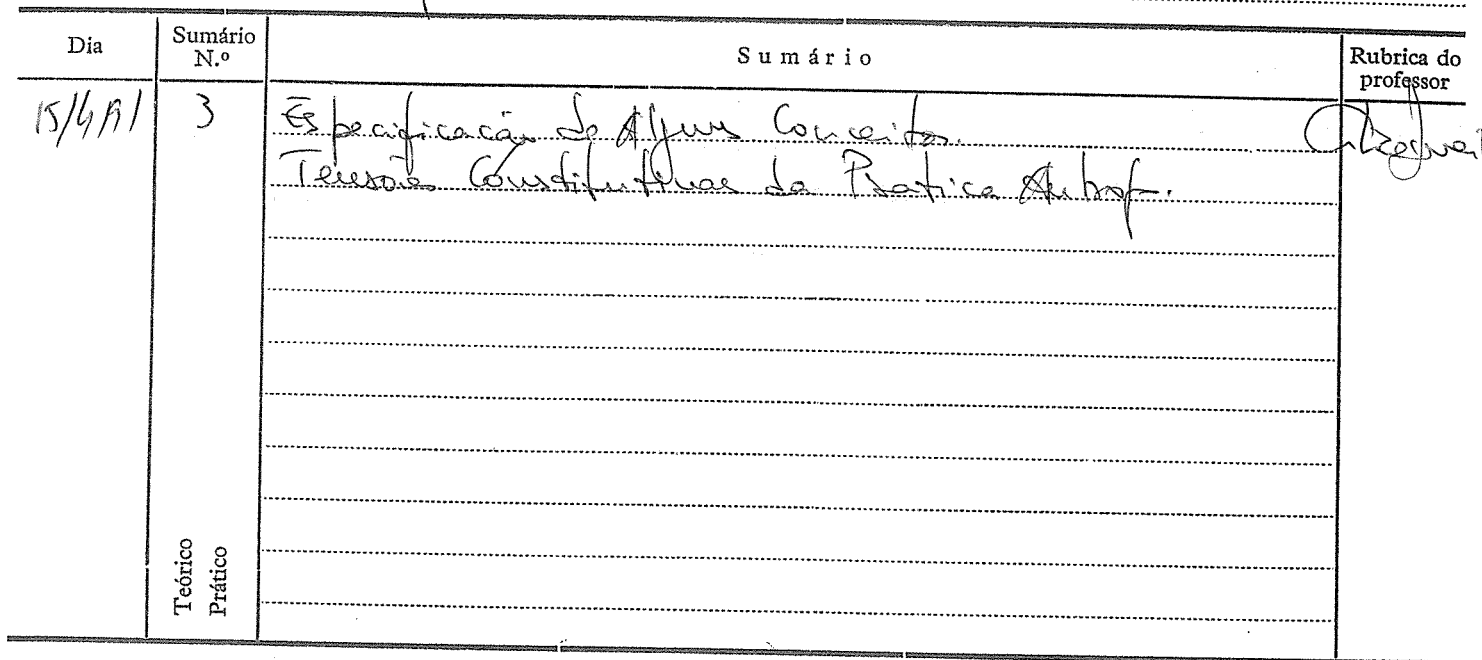 Dia
Sumário N.º
Sumário
Rubrica do professor
3
Especificação de Alguns Conceitos.
Tensões Constitutivas da Pratica Antrop.
Teórico
Prático